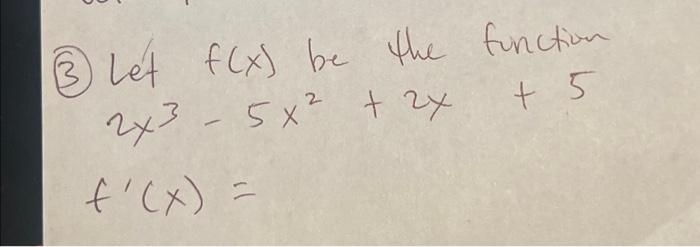 ③ Let f(x) be the function
2x³ - 5x² + 2x + 5
f'(x) =